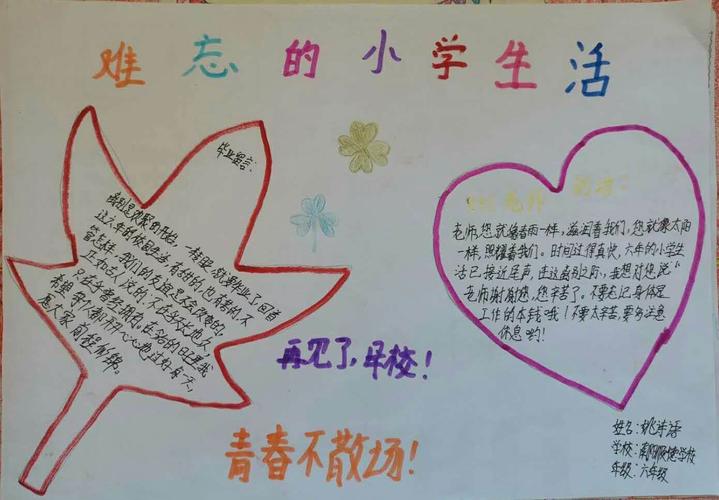 难忘的小学生活
毕业留言:
离别是欢聚的开始,一转眼,就要毕业了,回首
这六年的校园生活有甜的,也有苦的,不
管怎样,我们的友谊是不会改变的,
正如古人说的,不在乎天长地久,
只在乎曾经拥有,在它的日里我
希望每个人都开开心心地过好每一天,
愿大家前程似锦。
老师
老师,您就像春雨一样,滋润着我们,您就像太阳
一样,照耀着我们。时间过得真快,六年的小学生
活已接近尾声,在这离别之际,我想对您说"
老师谢谢您,您辛苦了。不要忘记身体是
工作的本钱哦!不要太辛苦,要多注意
休息哟!
再见了,母校!
青春不散场!
姓名:姚诗语
学校:
年级:六年级